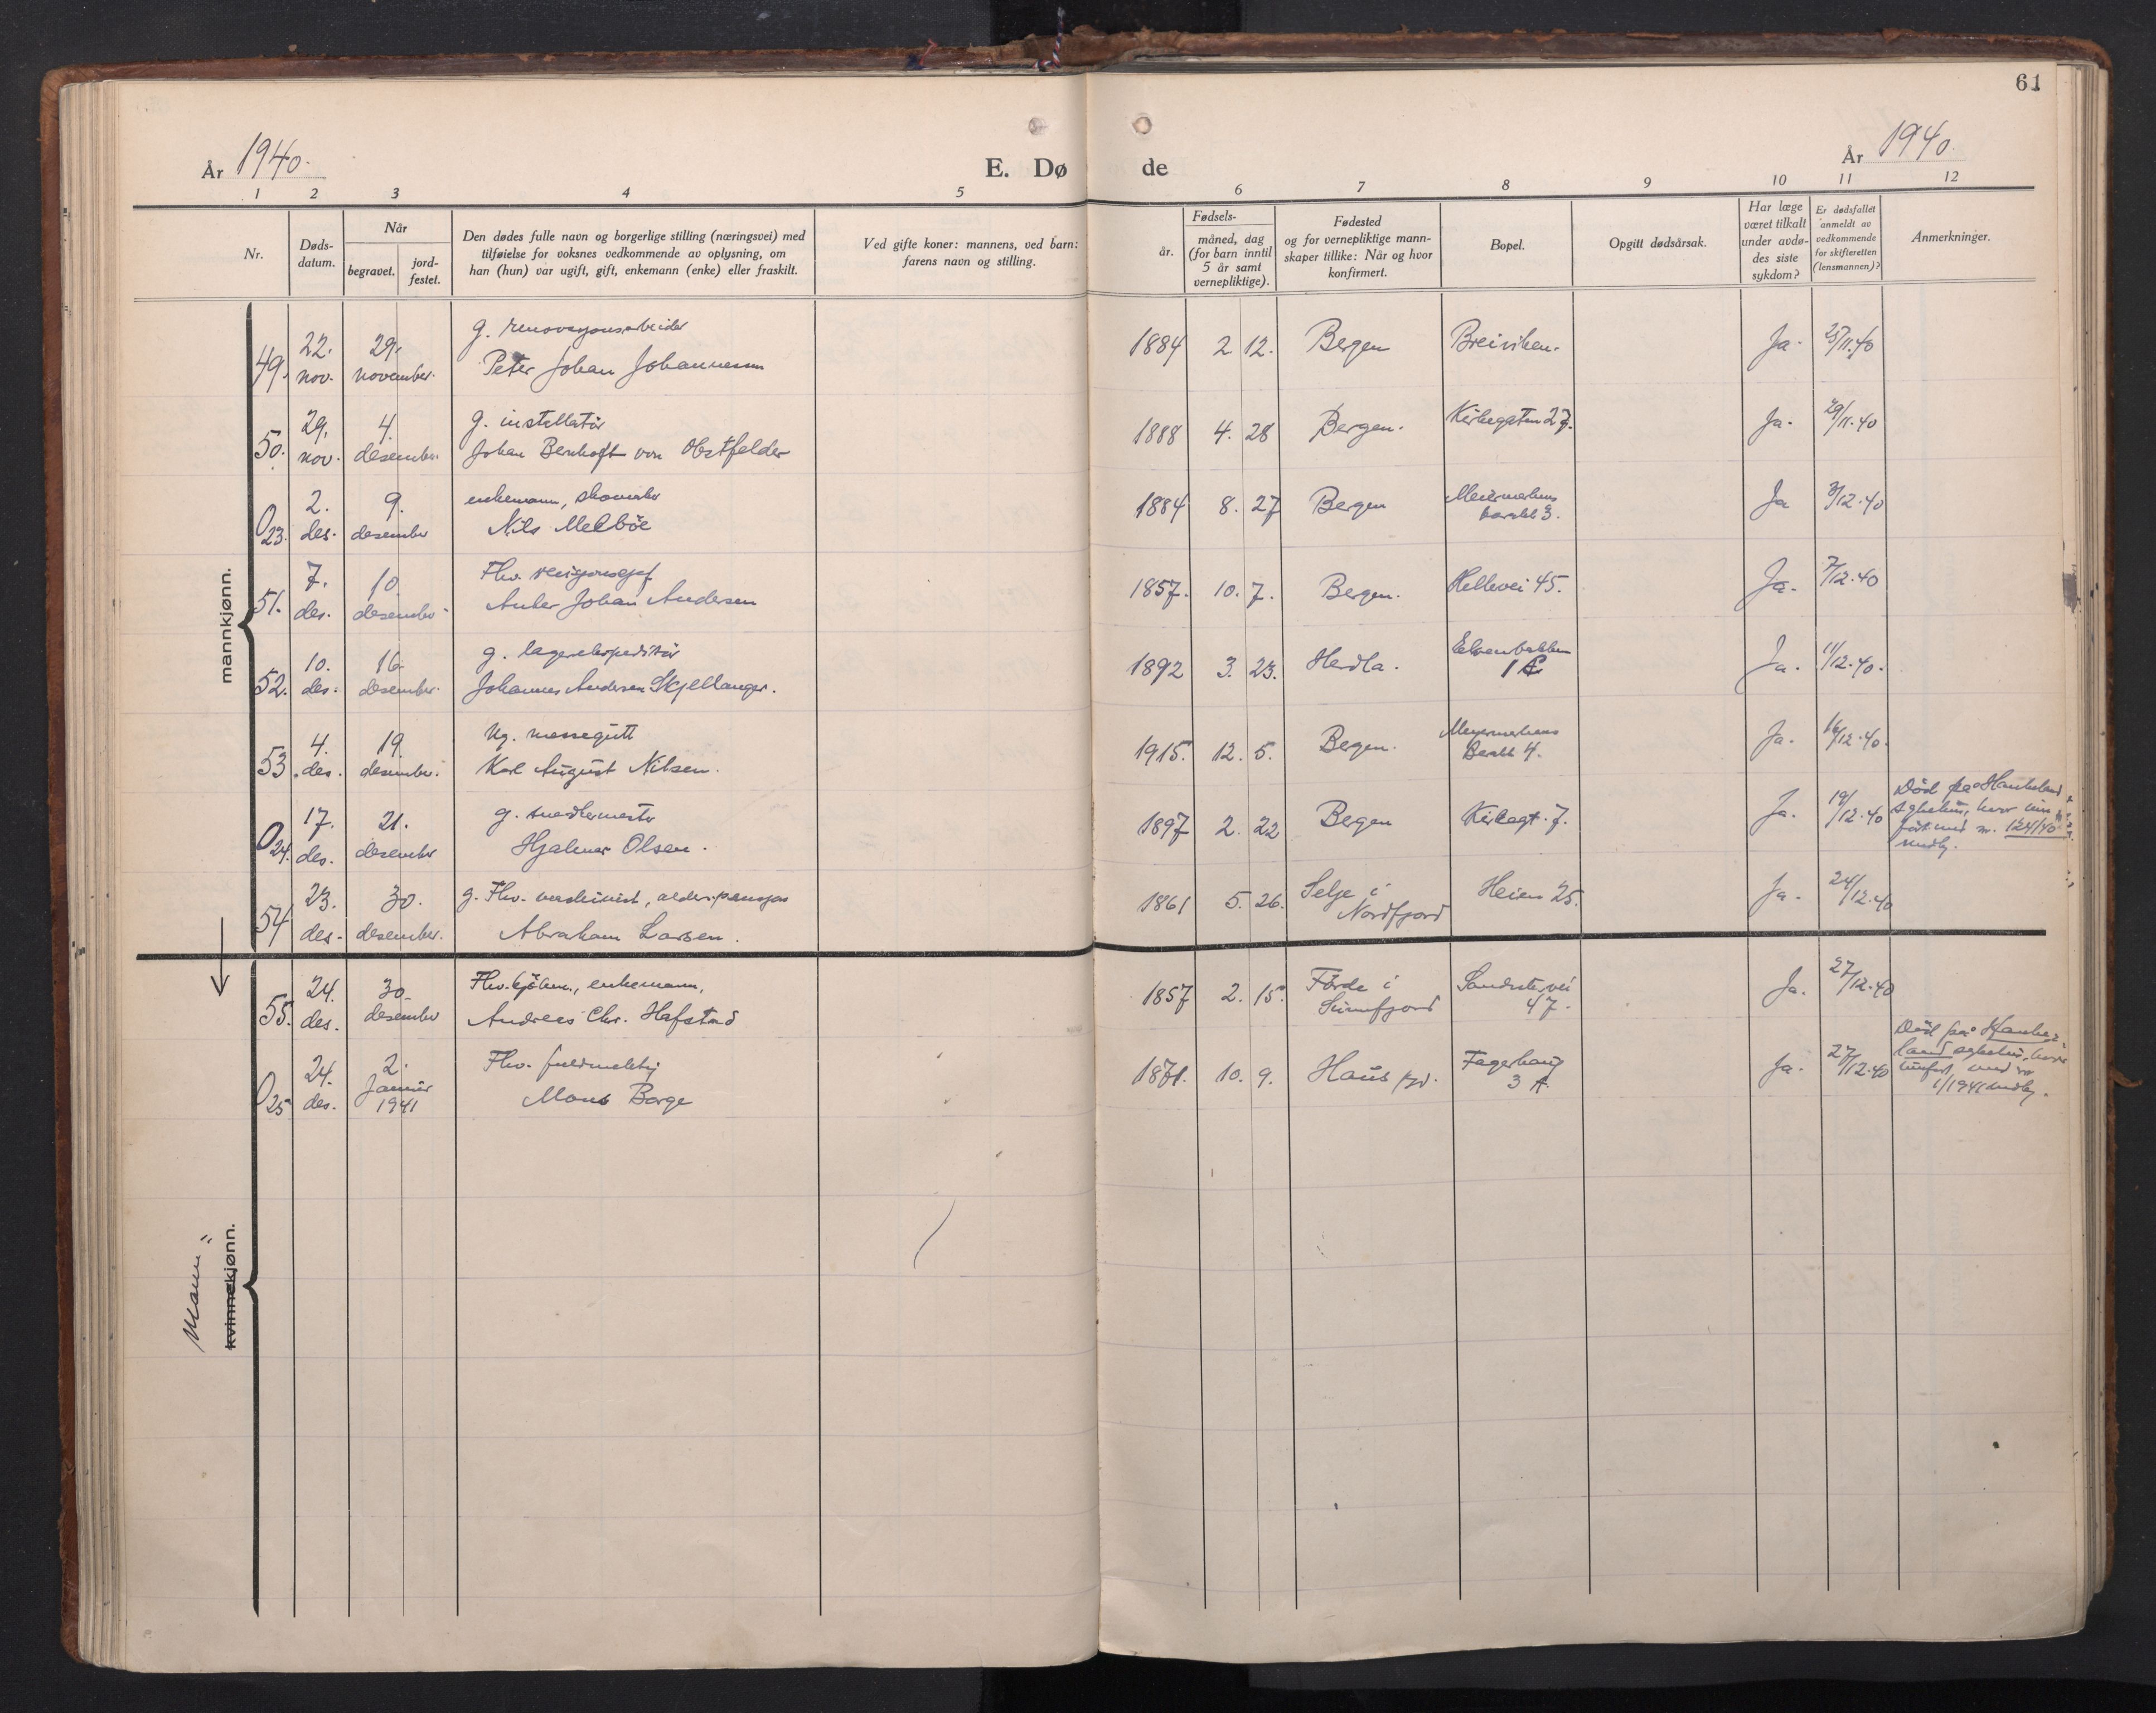 61
År 1940.
E. Dø de
År 1940.
1 2 3 4 5 6 7 8 9 10 11 12
Nr.
Døds-
datum.
Når
begravet.
jord-
festet.
Den dødes fulle navn og borgerlige stilling (næringsvei) med
tilføielse for voksnes vedkommende av oplysning, om
han (hun) var ugift, gift, enkemann (enke) eller fraskilt.
Ved gifte koner: mannens, ved barn:
farens navn og stilling.
Fødsels-
år.
måned, dag
(for barn inntil
5 år samt
vernepliktige).
Fødested
og for vernepliktige mann-
skaper tillike: Når og hvor
konfirmert.
Bopel.
Opgitt dødsårsak.
Har læge
været tilkalt
under avdø-
des siste
sykdom?
Er dødsfallet
anmeldt av
vedkommende
for skifteretten
(lensmannen)?
Anmerkninger.
mannkjønn.
49. 22. nov. 29. november.
g. renovasjonsarbeider
Peter Johan Johannessen
1884 2. 12. Bergen Breiviken. Ja. 25/11.40
50. 29. nov. 4. desember.
g. installatör
Johan Bernhoft von Obstfelder
1888 4. 28 Bergen. Kirkegaten 27. Ja. 29/11.40
O 23. 2. des. 9. desember
enkemann, skomaker
Nils Melböe
1884 8. 27 Bergen
3. Ja 3/12.40
51. 7. des. 10. desember
Fhv.
Anker Johan Andersen
1857. 10. 7. Bergen. Hellevei 45. Ja. 7/12.40
52. 10. des. 16. desember.
g. lagerekspeditör
Johannes Andersen Skjellanger.
1892 3. 23. Herdla.
Ja. 11/12.40.
53. 4. des. 19. desember.
Ug. messegutt
Karl August Nilsen.
1915. 12. 5. Bergen.
4. Ja. 16/12.40.
O 24. 17. des. 21. desember
g. snedkermester
Hjalmar Olsen.
1897 2. 22 Bergen Kirkegt. 7. Ja. 19/12.40
Död på Haukeland
sykehus, hvor inn
fört med nr. 124/40
54 23. des. 30. desember.
g. Fhv. maskinist, alderspensjon
Abraham Larsen.
1861 5. 26. Selje i
Nordfjord
Heien 25. Ja. 24/12.40
55. 24. des. 30. desember
Fhv. kjöbm., enkemann,
Andreas Chr. Hafstad
1857 2. 15. Förde i
Sunnfjord
47. Ja. 27/12.40
O 25 24. des. 2. Januar 1941
Fhv. fuldmektig
Mons Borge
1871. 10. 9. Haus
Fagerhaug
3 A. Ja. 27/12.40
Död på Hauke-
land sykehus, hvor
innfört med nr
1/1941
Mann=
kvinnekjønn.